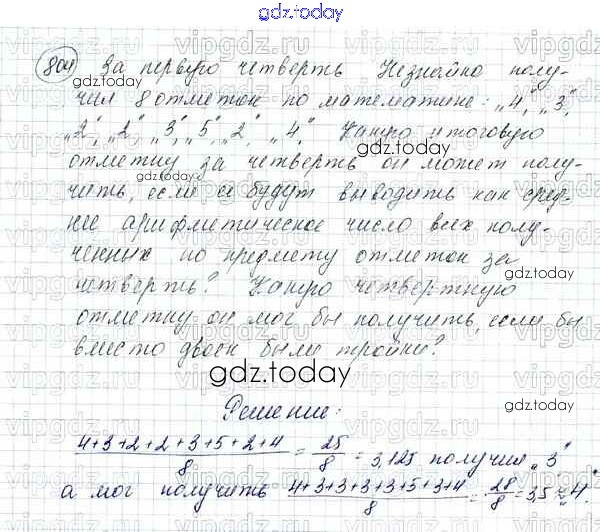 gdz.today
804 За первую четверть Незнайка полу-
чил 8 отметок по математике: "4", "3",
gdz.today
"2", "2", "3", "5", "2", "4". Какую итоговую
gdz.today
отметку за четверть он может полу-
gdz.today
чить, если её будут выводить как сред-
нее арифметическое число всех полу-
ченных по предмету отметок за
gdz.today
четверть? Какую четвертную
отметку он мог бы получить, если бы
gdz.today
вместо двоек были тройки?
gdz.today
Решение:
(4+3+2+2+3+5+2+4)/8 = 25/8 = 3,125 получил "3"
а мог получить (4+3+3+3+3+5+3+4)/8 = 28/8 = 3,5 ≈ "4".
vipgdz.ru